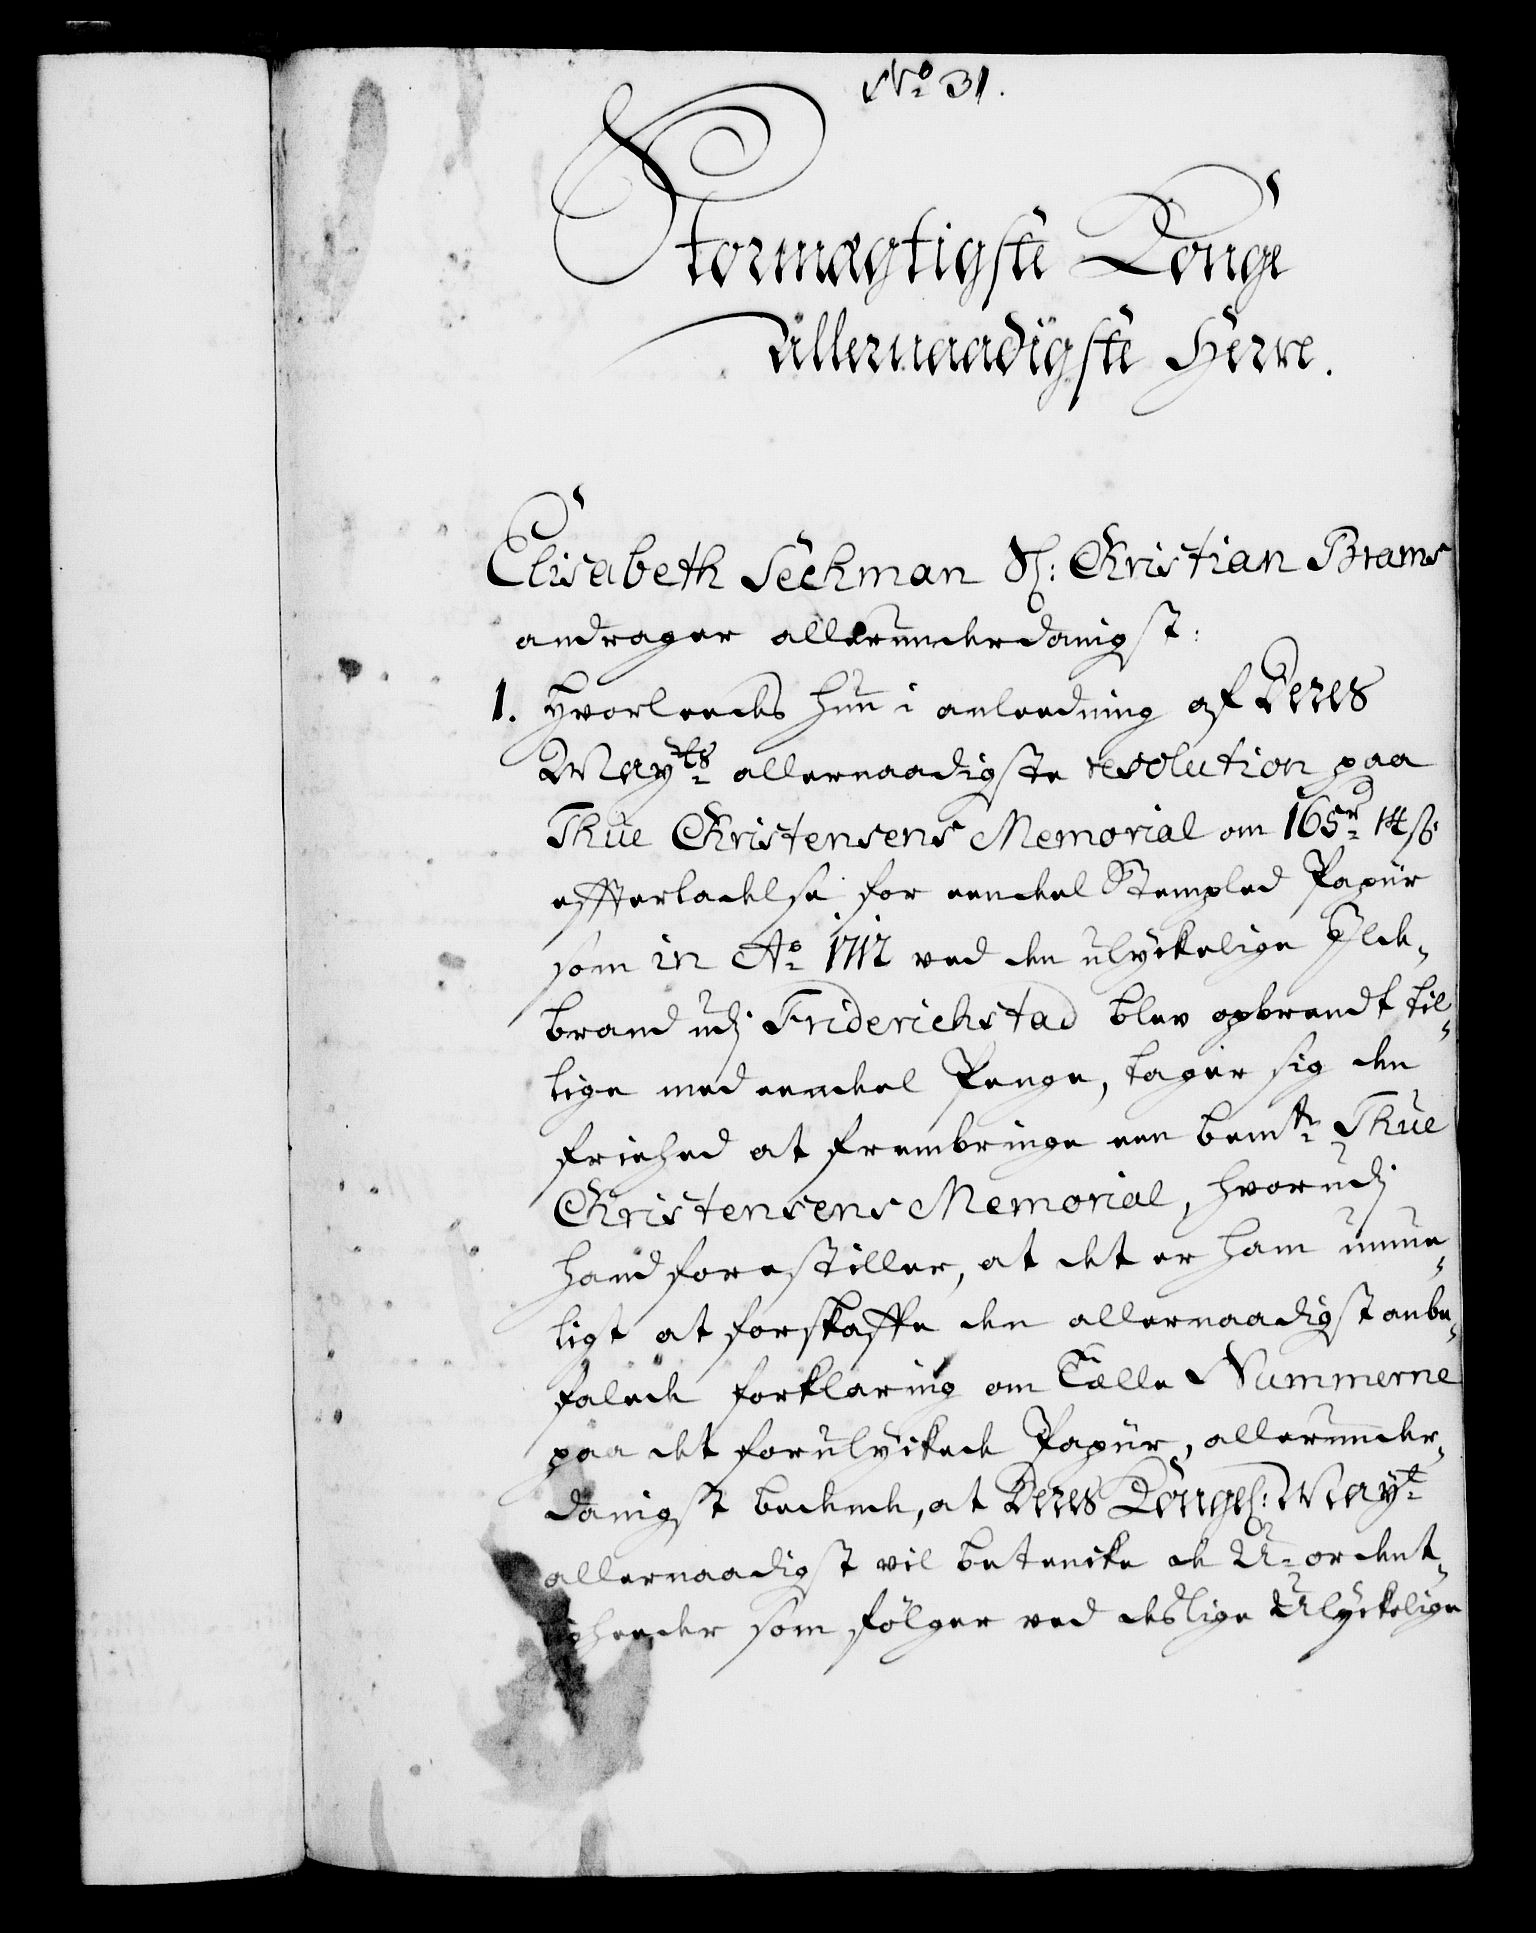 No 31.
Stormægtigste Konge
allernaadigste Herre.
Elisabeth Seckman Sl: Christian Brams
andrager allerunderdanigst:
1. Hvorleedes hun i anleedning af Deres
Mayts allernaadigste resolution paa
Thue Christensens Memorial om 165r 14 s:
effterladelse for eendeel Stempled Papiir
som in Ao 1712 ved den ulyckelige Ilde-
brand udj Friderichstad blev opbrendt til-
lige med eendeel Penge, tager sig den
friehed at frembringe een bemte Thue
Christensens Memorial, hvorudj
hand forestiller, at det er ham umue-
ligt at forskaffe den allernaadigst anbe-
falede forklaring om Tælle Nummerne
paa det forulyckede Papiir, allerunder-
danigst bedende, at Deres Kongel: Mayt
allernaadigst vil betencke de U-ordent-
ligheeder som følger ved deslige Ulyckelige